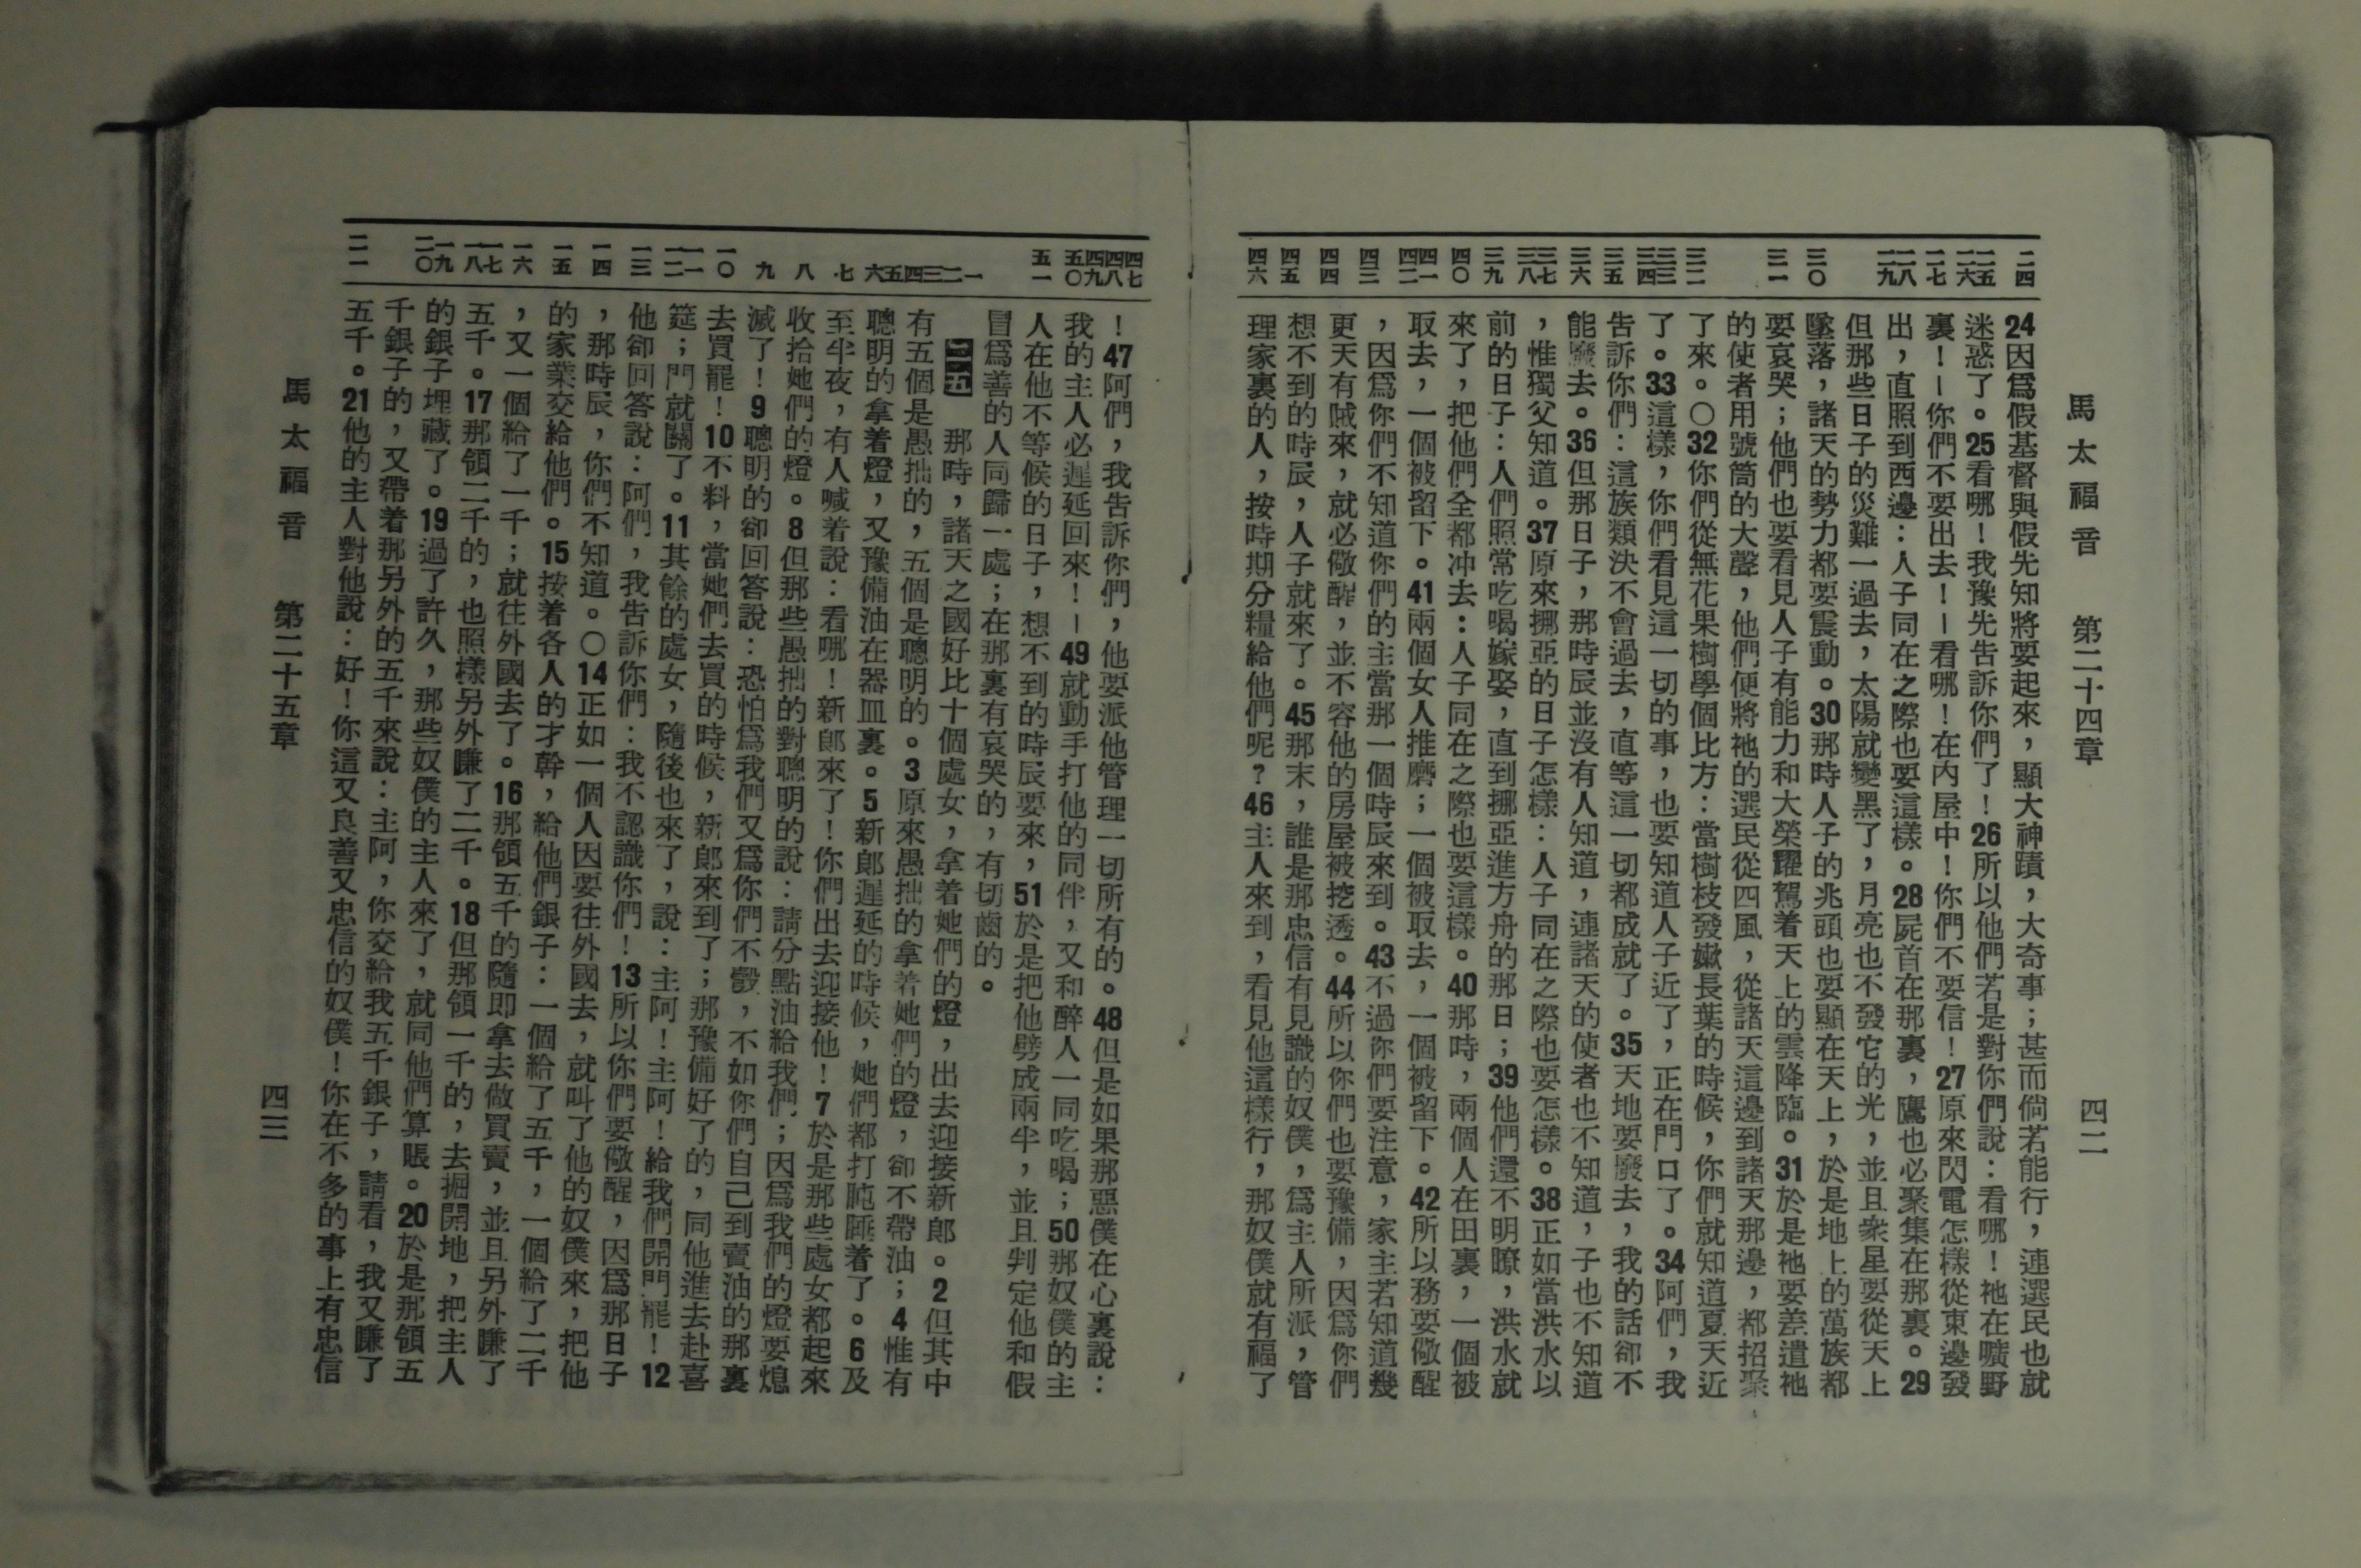 馬太福音 第二十四章 四二
二四 二五 二六 二七 二八 二九 三〇 三一 三二 三三 三四 三五 三六 三七 三八 三九 四〇 四一 四二 四三 四四 四五 四六
24因爲假基督與假先知將要起來，顯大神蹟，大奇事；甚而倘若能行，連選民也就
迷惑了。25看哪！我豫先告訴你們了！26所以他們若是對你們說：看哪！祂在曠野
裏！—你們不要出去！—看哪！在內屋中！你們不要信！27原來閃電怎樣從東邊發
出，直照到西邊：人子同在之際也要這樣。28屍首在那裏，鷹也必聚集在那裏。29
但那些日子的災難一過去，太陽就變黑了，月亮也不發它的光，並且衆星要從天上
墜落，諸天的勢力都要震動。30那時人子的兆頭也要顯在天上，於是地上的萬族都
要哀哭；他們也要看見人子有能力和大榮耀駕着天上的雲降臨。31於是祂要差遣祂
的使者用號筒的大聲，他們便將祂的選民從四風，從諸天這邊到諸天那邊，都招聚
了來。〇32你們從無花果樹學個比方：當樹枝發嫩長葉的時候，你們就知道夏天近
了。33這樣，你們看見這一切的事，也要知道人子近了，正在門口了。34阿們，我
告訴你們：這族類決不會過去，直等這一切都成就了。35天地要廢去，我的話卻不
能廢去。36但那日子，那時辰並沒有人知道，連諸天的使者也不知道，子也不知道
，惟獨父知道。37原來挪亞的日子怎樣：人子同在之際也要怎樣。38正如當洪水以
前的日子：人們照常吃喝嫁娶，直到挪亞進方舟的那日；39他們還不明瞭，洪水就
來了，把他們全都冲去：人子同在之際也要這樣。40那時，兩個人在田裏，一個被
取去，一個被留下。41兩個女人推磨；一個被取去，一個被留下。42所以務要儆醒
，因爲你們不知道你們的主當那一個時辰來到。43不過你們要注意，家主若知道幾
更天有賊來，就必儆醒，並不容他的房屋被挖透。44所以你們也要豫備，因爲你們
想不到的時辰，人子就來了。45那末，誰是那忠信有見識的奴僕，爲主人所派，管
理家裏的人，按時期分糧給他們呢？46主人來到，看見他這樣行，那奴僕就有福了
四七 四八 四九 五〇 五一 一 二 三 四 五 六 七 八 九 一〇 一一 一二 一三 一四 一五 一六 一七 一八 一九 二〇 二一
！47阿們，我告訴你們，他要派他管理一切所有的。48但是如果那惡僕在心裏說：
我的主人必遲延回來！—49就動手打他的同伴，又和醉人一同吃喝；50那奴僕的主
人在他不等候的日子，想不到的時辰要來，51於是把他劈成兩半，並且判定他和假
冒爲善的人同歸一處；在那裏有哀哭的，有切齒的。
二五 那時，諸天之國好比十個處女，拿着她們的燈，出去迎接新郎。2但其中
有五個是愚拙的，五個是聰明的。3原來愚拙的拿着她們的燈，卻不帶油；4惟有
聰明的拿着燈，又豫備油在器皿裏。5新郎遲延的時候，她們都打盹睡着了。6及
至半夜，有人喊着說：看哪！新郎來了！你們出去迎接他！7於是那些處女都起來
收拾她們的燈。8但那些愚拙的對聰明的說：請分點油給我們；因爲我們的燈要熄
滅了！9聰明的卻回答說：恐怕爲我們又爲你們不彀，不如你們自己到賣油的那裏
去買罷！10不料，當她們去買的時候，新郎來到了；那豫備好了的，同他進去赴喜
筵；門就關了。11其餘的處女，隨後也來了，說：主阿！主阿！給我們開門罷！12
他卻回答說：阿們，我告訴你們：我不認識你們！13所以你們要儆醒，因爲那日子
，那時辰，你們不知道。〇14正如一個人因要往外國去，就叫了他的奴僕來，把他
的家業交給他們。15按着各人的才幹，給他們銀子：一個給了五千，一個給了二千
，又一個給了一千；就往外國去了。16那領五千的隨即拿去做買賣，並且另外賺了
五千。17那領二千的，也照樣另外賺了二千。18但那領一千的，去掘開地，把主人
的銀子埋藏了。19過了許久，那些奴僕的主人來了，就同他們算賬。20於是那領五
千銀子的，又帶着那另外的五千來說：主阿，你交給我五千銀子，請看，我又賺了
五千。21他的主人對他說：好！你這又良善又忠信的奴僕！你在不多的事上有忠信
馬太福音 第二十五章 四三